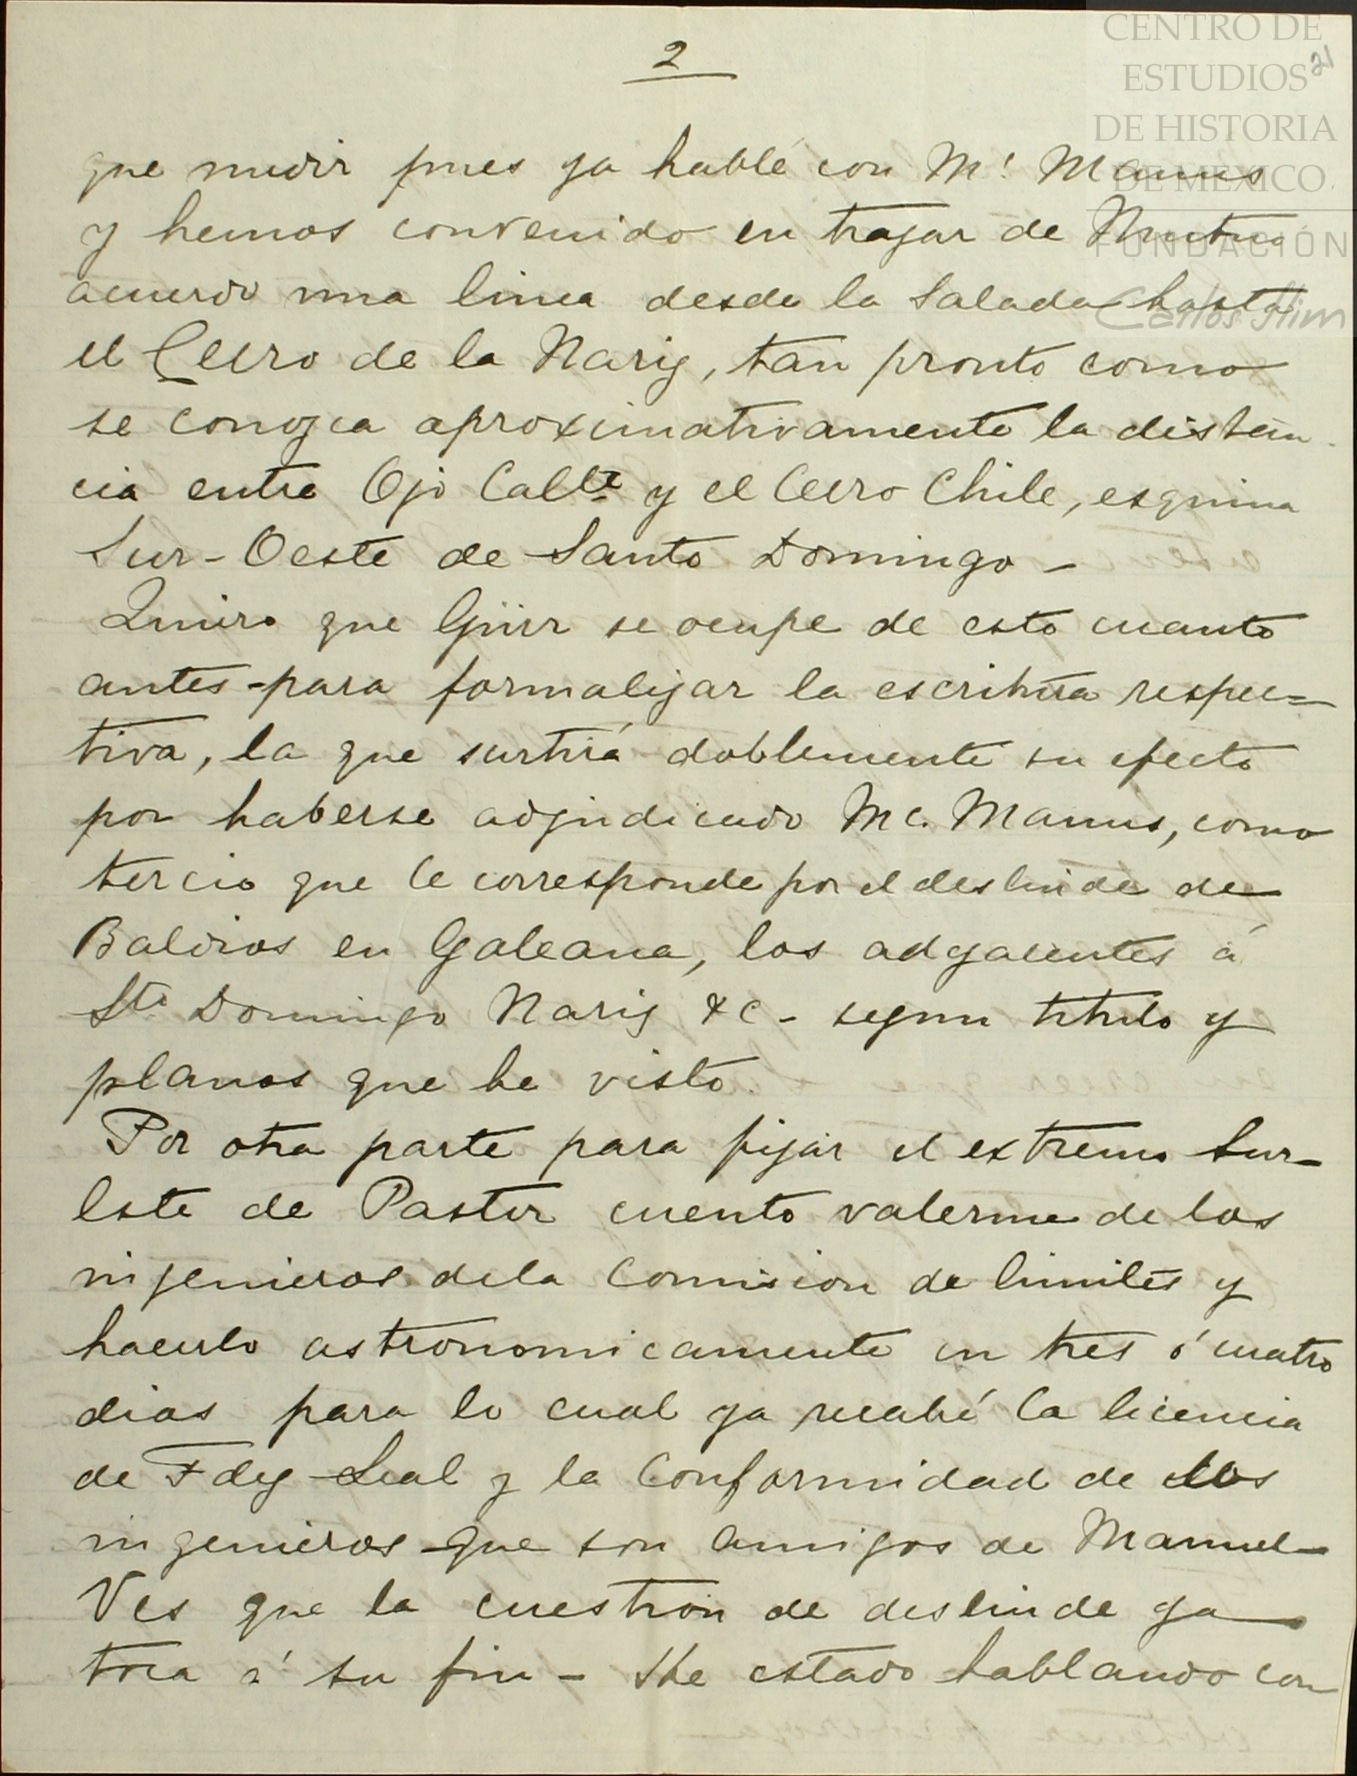 2
21
CENTRO DE
ESTUDIOS
DE HISTORIA
DE MÉXICO
FUNDACIÓN
Carlos Slim
que medir pues ya hablé con Mc. Manus
y hemos convenido en trazar de Mutuo
acuerdo una linea desde la Salada hasta
el Cerro de la Nariz, tan pronto como
se conozca aproximativamente la distan-
cia entre Ojo Callte y el Cerro Chile, esquina
Sur-Oeste de Santo Domingo -
Quiero que Güirr se ocupe de esto cuanto
antes para formalizar la escritura respec=
tiva, la que surtirá doblemente su efecto
por haberse adjudicado Mc. Manus, como
tercio que le corresponde por el deslinde de
Baldios en Galeana, los adyacentes á
Sto Domingo Nariz &c - segun titulo y
planos que he visto.
Por otra parte para fijar el extremo Sur-
Este de Pastor cuento valerme de los
ingenieros de la Comision de limites y
hacerlo astronomicamente en tres ó cuatro
dias para lo cual ya recabé la licencia
de Fdez Leal y la Conformidad de los
ingenieros que son amigos de Manuel-
Ves que la cuestion de deslinde ya
toca á su fin - He estado hablando con